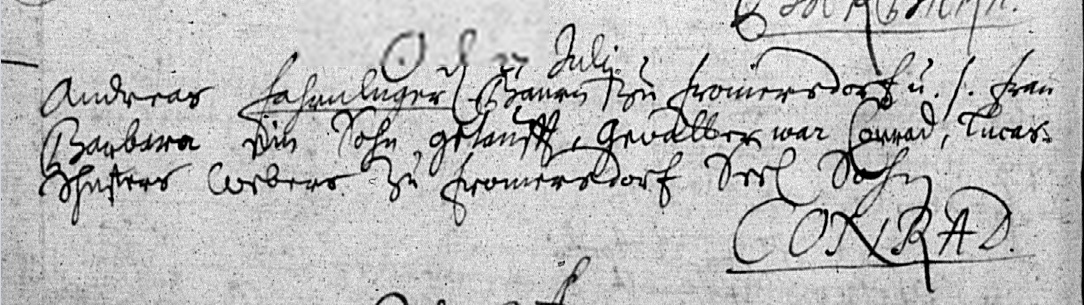 Juli
Andreas Fahrnluger, Baurn zu Fromersdorf u. s. Frau
Barbara Ein Sohn getaufft, Gevatter war Conrad, Lucas
Schusters Webers zu Fromersdorf Seel Sohn
CONRAD.